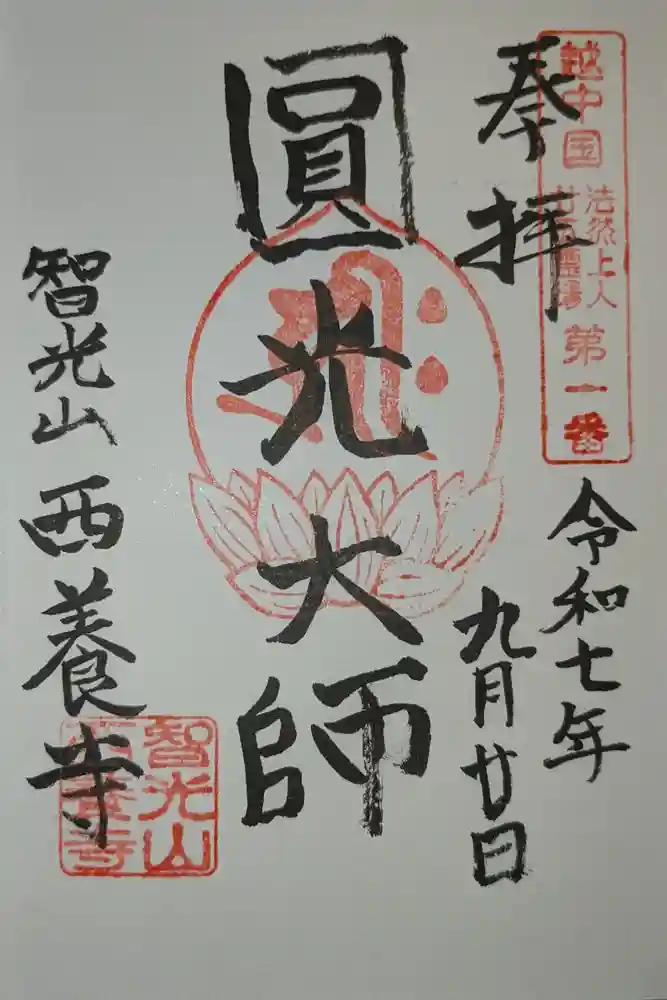 越中国
法然上人
廿五霊場
第一番
奉拝
令和七年
九月廿日
圓光大師
智光山西養寺
智光山
西養寺